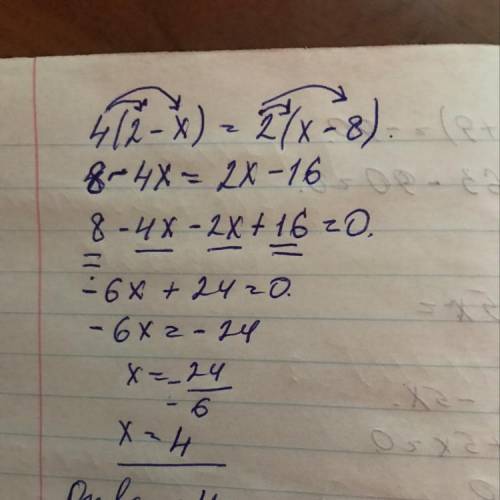 4(2 - x) = 2(x - 8).
8 - 4x = 2x - 16
8 - 4x - 2x + 16 = 0.
-6x + 24 = 0.
-6x = -24
x = -24/-6
x = 4